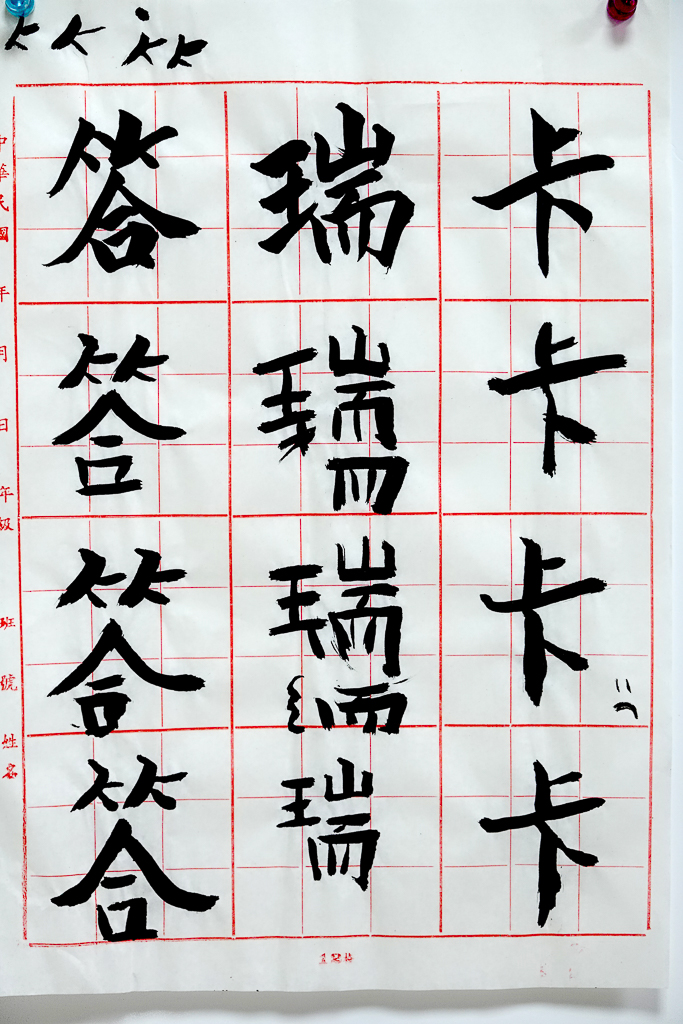 卡卡卡卡
瑞瑞瑞瑞
答答答答
中華民國 年 月 日 年級 班 號 姓名